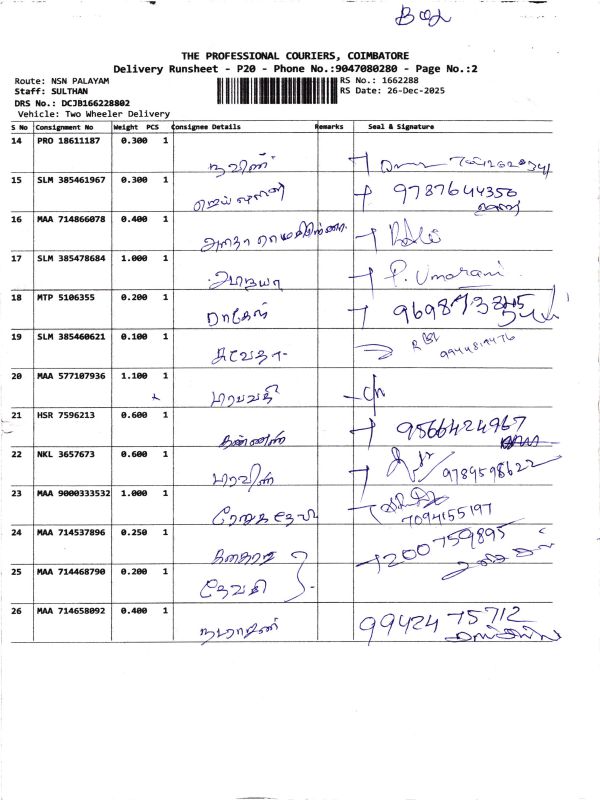 THE PROFESSIONAL COURIERS, COIMBATORE
Delivery Runsheet - P20 - Phone No.:9047080280 - Page No.:2
Route: NSN PALAYAM RS No.: 1662288
Staff: SULTHAN RS Date: 26-Dec-2025
DRS No.: DCJB166228802
Vehicle: Two Wheeler Delivery
S No Consignment No Weight PCS Consignee Details Remarks Seal & Signature
14 PRO 18611187 0.300 1
நவீன்
15 SLM 385461967 0.300 1 9787644350
16 MAA 714866078 0.400 1
17 SLM 385478684 1.000 1
P. Umarani
18 MTP 5106355 0.200 1
ராகேஷ்
19 SLM 385460621 0.100 1
கவிதா 9944819476
20 MAA 577107936 1.100 1
பார்வதி
21 HSR 7596213 0.600 1 9566424967
கண்ணன்
22 NKL 3657673 0.600 1
பிரவீன் 9789598622
23 MAA 9000333532 1.000 1
7094155197
24 MAA 714537896 0.250 1 7200759895
25 MAA 714468790 0.200 1
தேவகி
26 MAA 714658092 0.400 1 99424 75712
நடராஜன்